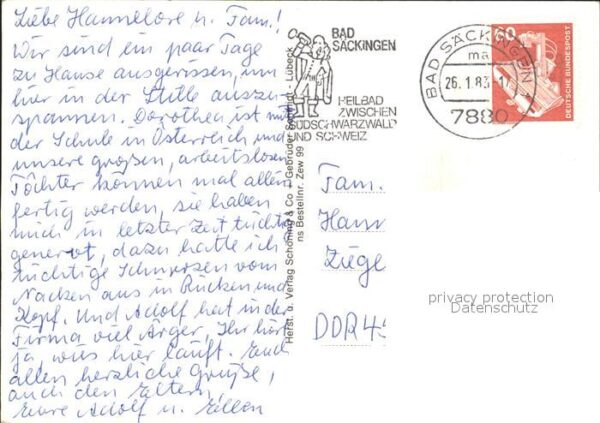 Liebe Hannelore u. Fam.!
Wir sind ein paar Tage
zu Hause ausgerissen, um
hier in der Stille auszu-
spannen. Dorothea ist mit
der Schule in Österreich und
unsere großen, arbeitslosen
Töchter können mal allein
fertig werden, sie haben
mich in letzter Zeit tüchtig
genervt, dazu hatte ich
tüchtige Schmerzen vom
Nacken aus in Rücken und
Kopf. Und Adolf hat in der
Firma viel Ärger, Ihr hört
ja, was hier läuft. Euch
allen herzliche Grüße,
auch den Eltern,
Eure Adolf u. Ellen
Herst. u. Verlag Schöning & Co + Gebrüder Schmidt, Lübeck
ns Bestellnr. Zew 99
BAD
SÄCKINGEN
HEILBAD
ZWISCHEN
SÜDSCHWARZWALD
UND SCHWEIZ
BAD SÄCKINGEN
ma
26.1.83
7880
60
DEUTSCHE BUNDESPOST
Fam.
Hann
Ziege
DDR 45
privacy protection
Datenschutz